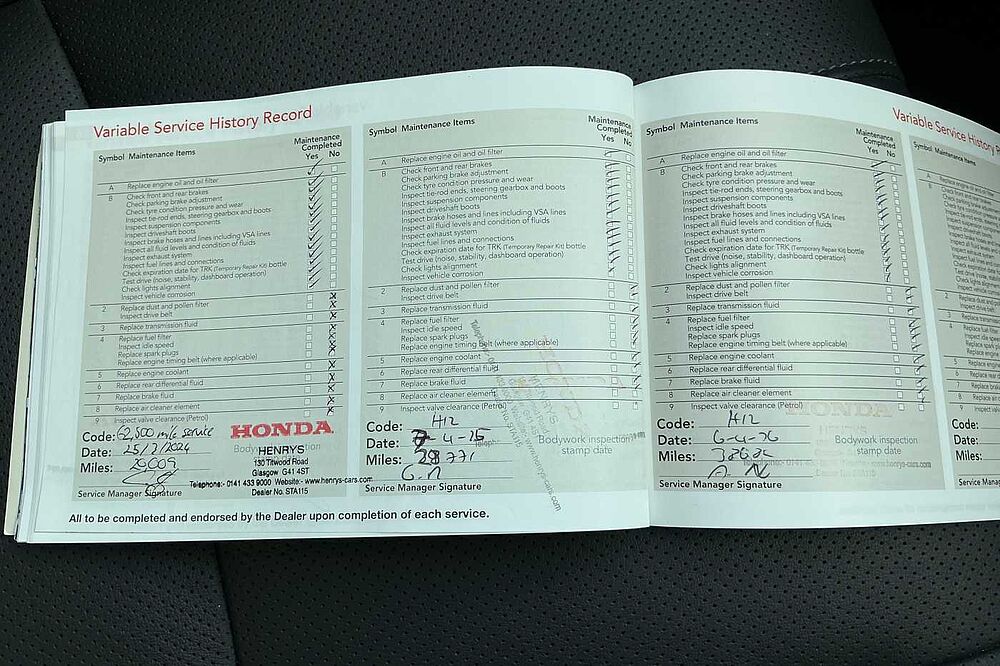 Variable Service History Record
Symbol Maintenance Items
Maintenance Completed
Yes No
A Replace engine oil and oil filter
B Check front and rear brakes
Check parking brake adjustment
Check tyre condition pressure and wear
Inspect tie-rod ends, steering gearbox and boots
Inspect suspension components
Inspect driveshaft boots
Inspect brake hoses and lines including VSA lines
Inspect all fluid levels and condition of fluids
Inspect exhaust system
Inspect fuel lines and connections
Check expiration date for TRK (Temporary Repair Kit) bottle
Test drive (noise, stability, dashboard operation)
Check lights alignment
Inspect vehicle corrosion
2 Replace dust and pollen filter
Inspect drive belt
3 Replace transmission fluid
4 Replace fuel filter
Inspect idle speed
Replace spark plugs
Replace engine timing belt (where applicable)
5 Replace engine coolant
6 Replace rear differential fluid
7 Replace brake fluid
8 Replace air cleaner element
9 Inspect valve clearance (Petrol)
Code: 62,500 mile service
Date: 25/3/2024
Miles: 29009
Service Manager Signature
HONDA
HENRYS
130 Titwood Road
Glasgow G41 4ST
Telephone:- 0141 433 9000 Website:- www.henrys-cars.com
Dealer No. STA115
Symbol Maintenance Items
Maintenance Completed
Yes No
A Replace engine oil and oil filter
B Check front and rear brakes
Check parking brake adjustment
Check tyre condition pressure and wear
Inspect tie-rod ends, steering gearbox and boots
Inspect suspension components
Inspect driveshaft boots
Inspect brake hoses and lines including VSA lines
Inspect all fluid levels and condition of fluids
Inspect exhaust system
Inspect fuel lines and connections
Check expiration date for TRK (Temporary Repair Kit) bottle
Test drive (noise, stability, dashboard operation)
Check lights alignment
Inspect vehicle corrosion
2 Replace dust and pollen filter
Inspect drive belt
3 Replace transmission fluid
4 Replace fuel filter
Inspect idle speed
Replace spark plugs
Replace engine timing belt (where applicable)
5 Replace engine coolant
6 Replace rear differential fluid
7 Replace brake fluid
8 Replace air cleaner element
9 Inspect valve clearance (Petrol)
Code: A12
Date: 7-4-25
Miles:
Service Manager Signature
Bodywork inspection
stamp date
All to be completed and endorsed by the Dealer upon completion of each service.
Symbol Maintenance Items
Maintenance Completed
Yes No
A Replace engine oil and oil filter
B Check front and rear brakes
Check parking brake adjustment
Check tyre condition pressure and wear
Inspect tie-rod ends, steering gearbox and boots
Inspect suspension components
Inspect driveshaft boots
Inspect brake hoses and lines including VSA lines
Inspect all fluid levels and condition of fluids
Inspect exhaust system
Inspect fuel lines and connections
Check expiration date for TRK (Temporary Repair Kit) bottle
Test drive (noise, stability, dashboard operation)
Check lights alignment
Inspect vehicle corrosion
2 Replace dust and pollen filter
Inspect drive belt
3 Replace transmission fluid
4 Replace fuel filter
Inspect idle speed
Replace spark plugs
Replace engine timing belt (where applicable)
5 Replace engine coolant
6 Replace rear differential fluid
7 Replace brake fluid
8 Replace air cleaner element
9 Inspect valve clearance (Petrol)
Code: A12
Date: 6-4-26
Miles:
Service Manager Signature
Bodywork inspection
stamp date
Variable Service History
Symbol Maintenance Items
Code:
Date:
Miles: